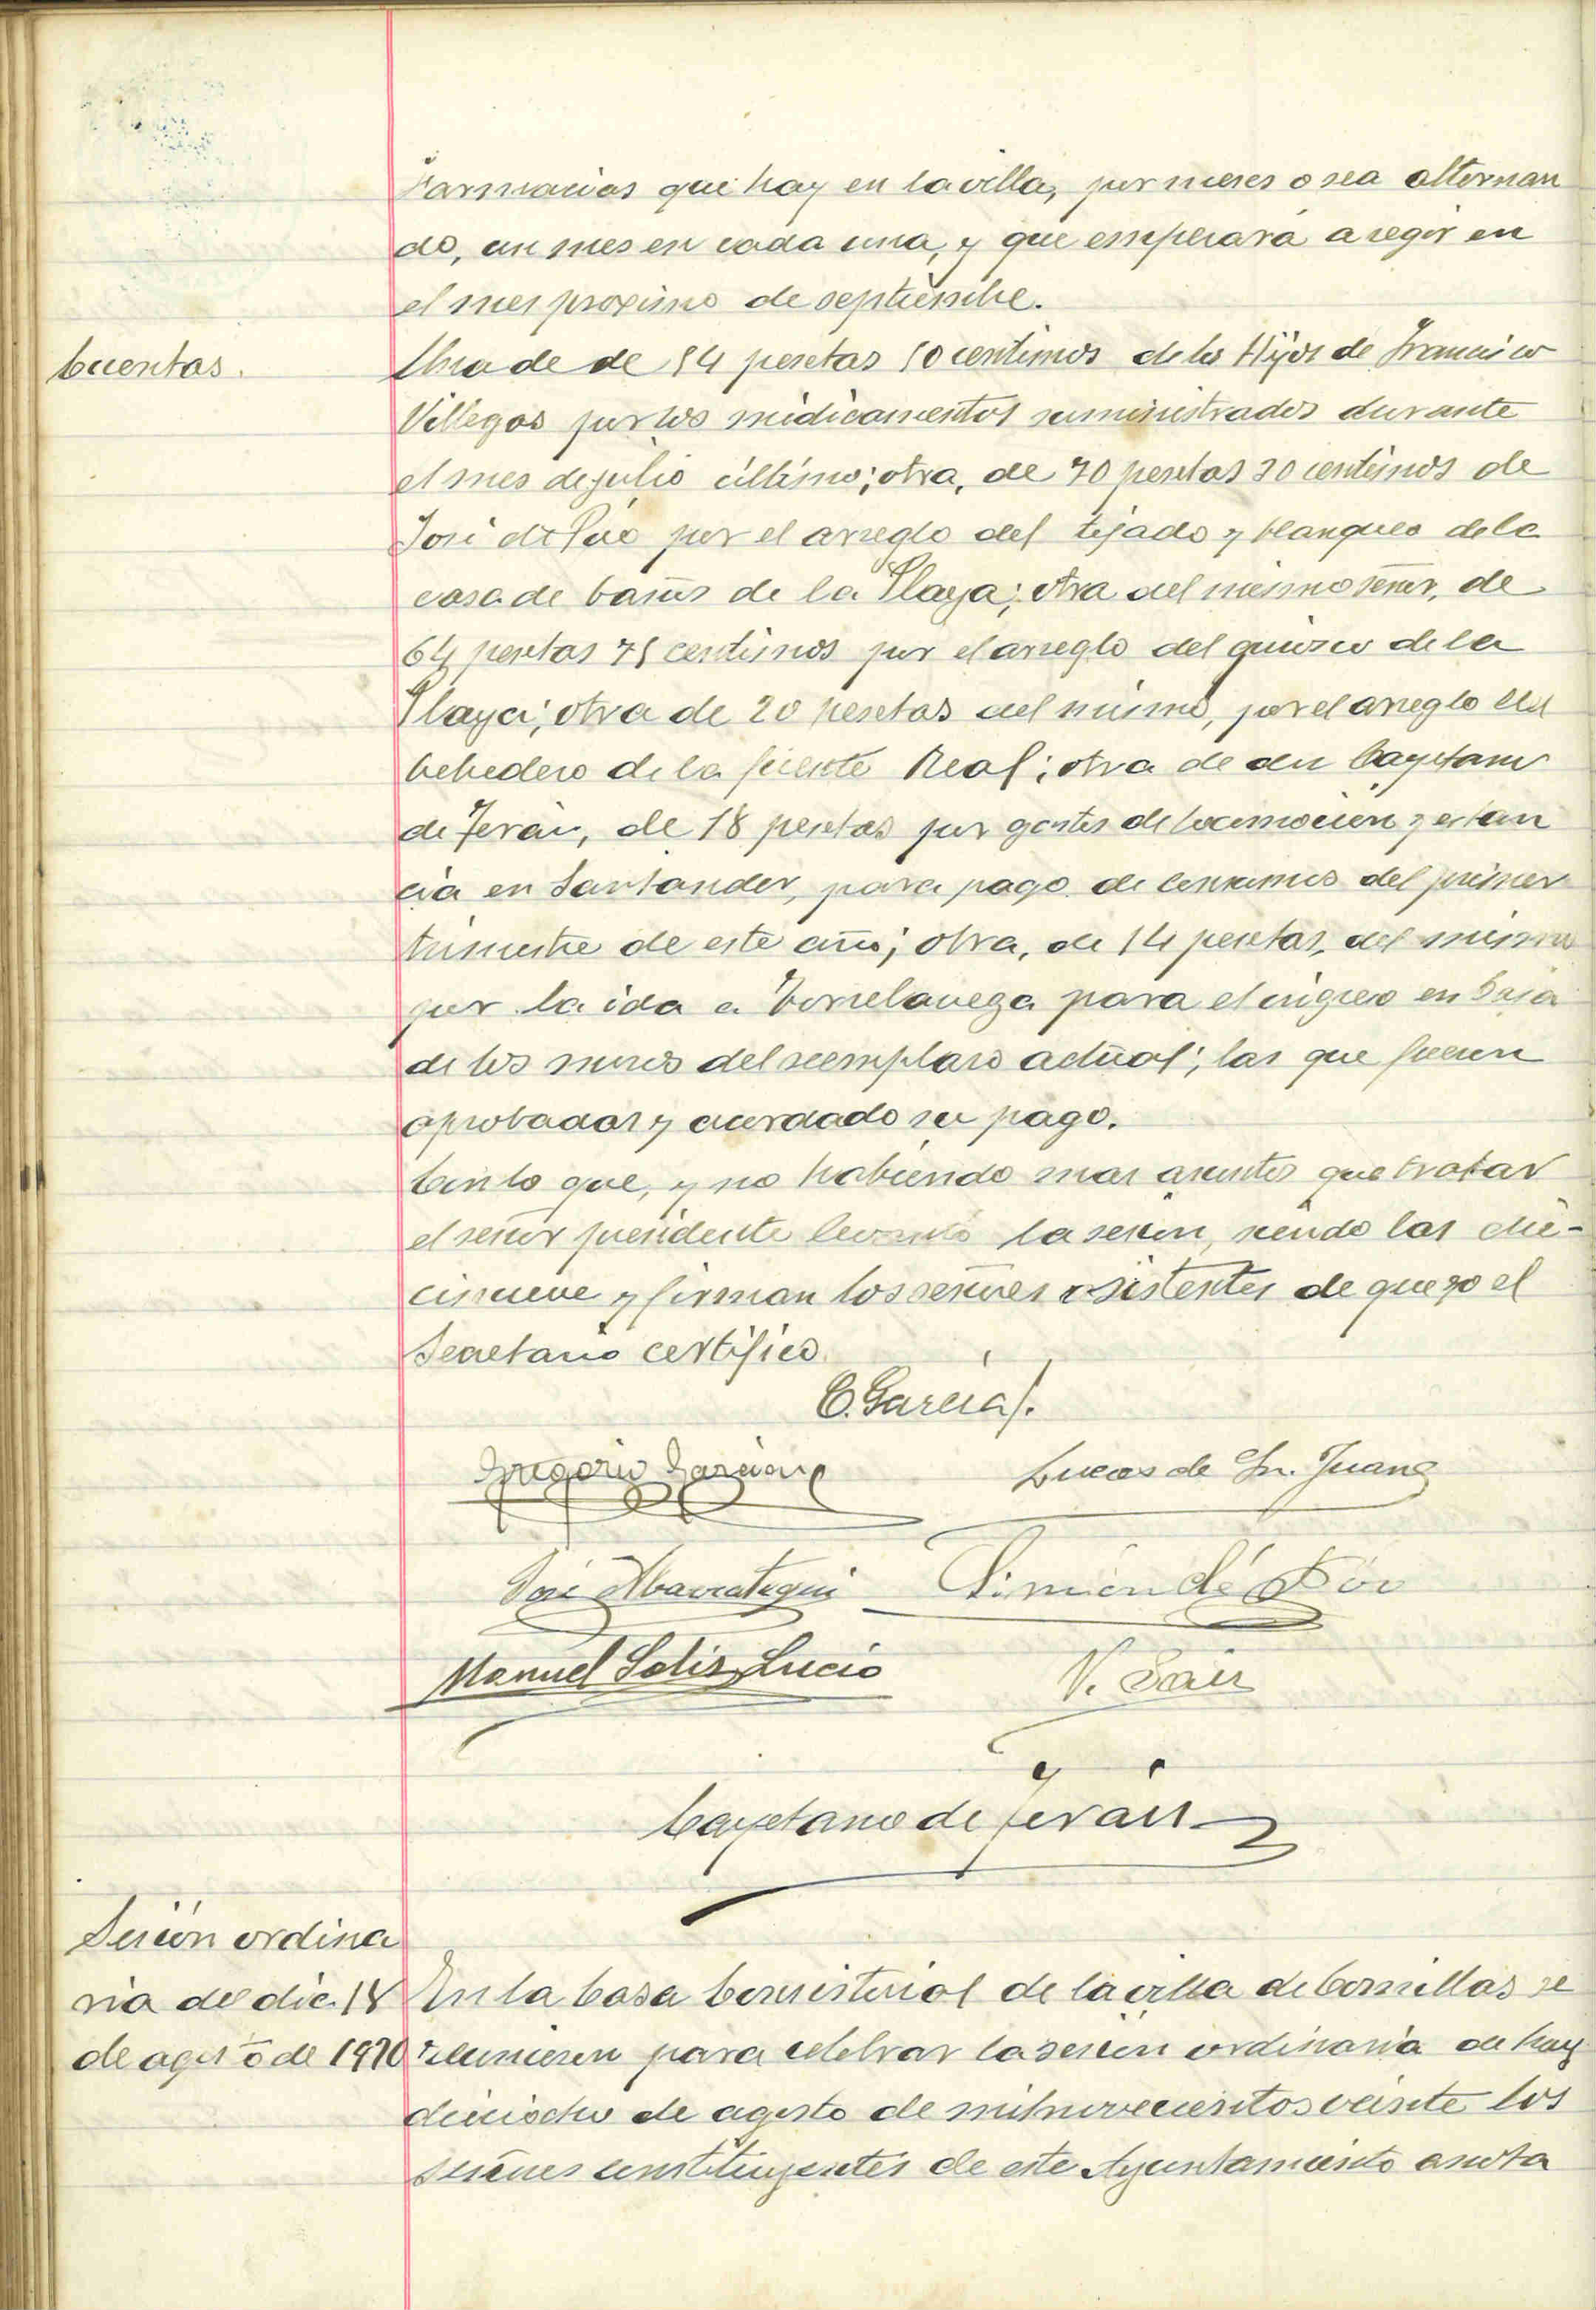 Farmacias que hay en la villa, por meses o sea alternan
do, un mes en cada una, y que empezará a regir en
el mes proximo de septiembre.
Cuentas.
Una de de 84 pesetas 10 centimos de los Hijos de Francisco
Villegas por los medicamentos suministrados durante
el mes de julio último; otra, de 70 pesetas 30 centimos de
José de Pío por el arreglo del tejado y blanqueo de la
casa de baños de la Playa; otra del mismo señor, de
64 pesetas 75 centimos por el arreglo del quiosco de la
Playa; otra de 20 pesetas del mismo, por el arreglo del
bebedero de la fuente Real; otra de don Cayetano
de Terán, de 18 pesetas por gastos de locomoción y estan
cia en Santander, para pago de consumos del primer
trimestre de este año; otra, de 14 pesetas, del mismo
por la ida a Torrelavega para el ingreso en Caja
de los mozos del reemplazo actual; las que fueron
aprobadas y acordado su pago.
Con lo que, y no habiendo mas asuntos que tratar
el señor presidente levantó la sesión, siendo las die-
cinueve y firman los señores asistentes de que yo el
Secretario certifico.
C. García
Gregorio
Lucas de Sn. Juan
José Abarrategui
Simón de Pío
Manuel Solis Lucio
V. Saiz
Cayetano de Terán
Sesión ordina
ria del dia 18
de agosto de 1920
En la Casa Consistorial de la villa de Comillas se
reunieron para celebrar la sesión ordinaria de hoy
dieciocho de agosto de mil novecientos veinte los
señores constituyentes de este Ayuntamiento anota